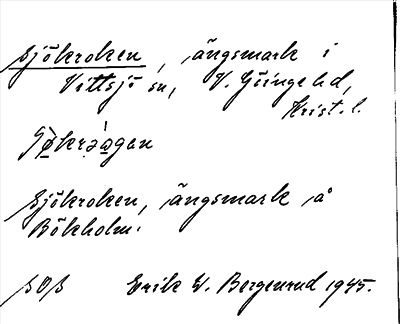 Sjökroken, ängsmark i
Vittsjö sn, V. Göinge hd,
Krist. l.
Sjökroken, ängsmark å
Bökholm.
Erik W. Bergenrud 1945.